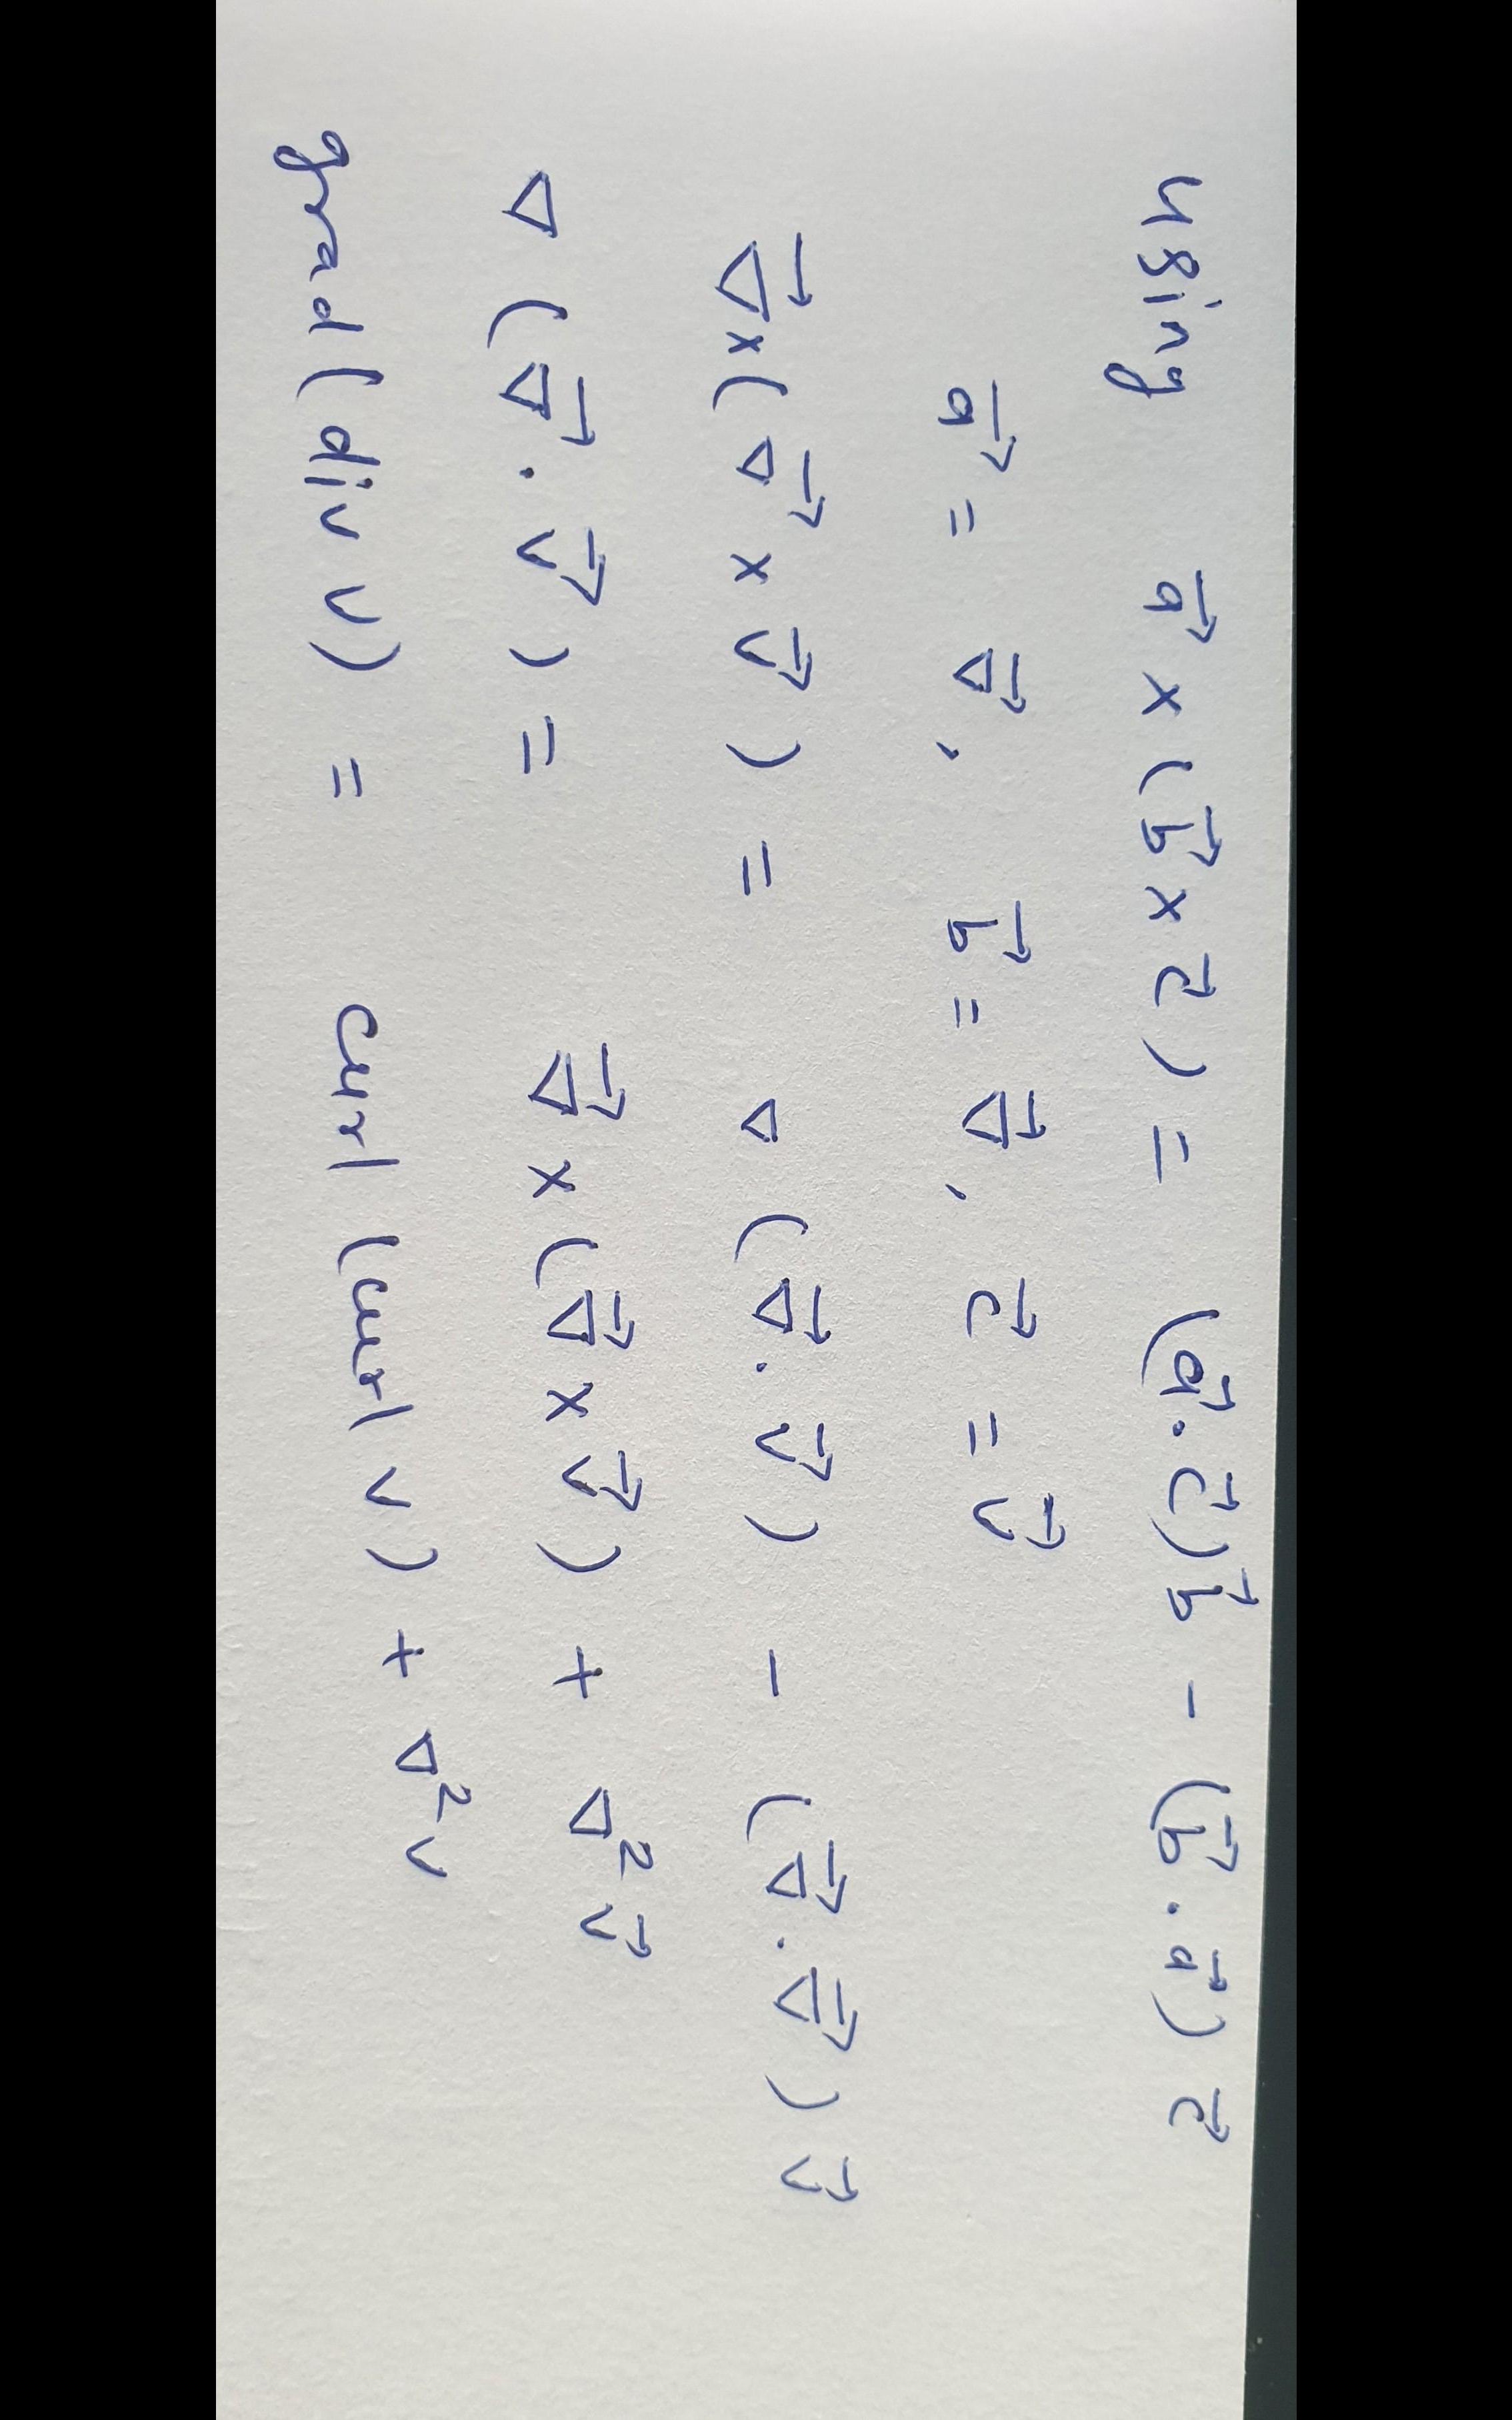 using a⃗ × (b⃗ × c⃗) = (a⃗ . c⃗) b⃗ - (b⃗ . a⃗) c⃗
a⃗ = ∇⃗, b⃗ = ∇⃗, c⃗ = v⃗
∇⃗ × (∇⃗ × v⃗) = ∇ (∇⃗ . v⃗) - (∇⃗ . ∇⃗) v⃗
∇ (∇⃗ . v⃗) = ∇⃗ × (∇⃗ × v⃗) + ∇² v⃗
grad (div v) = curl (curl v) + ∇² v